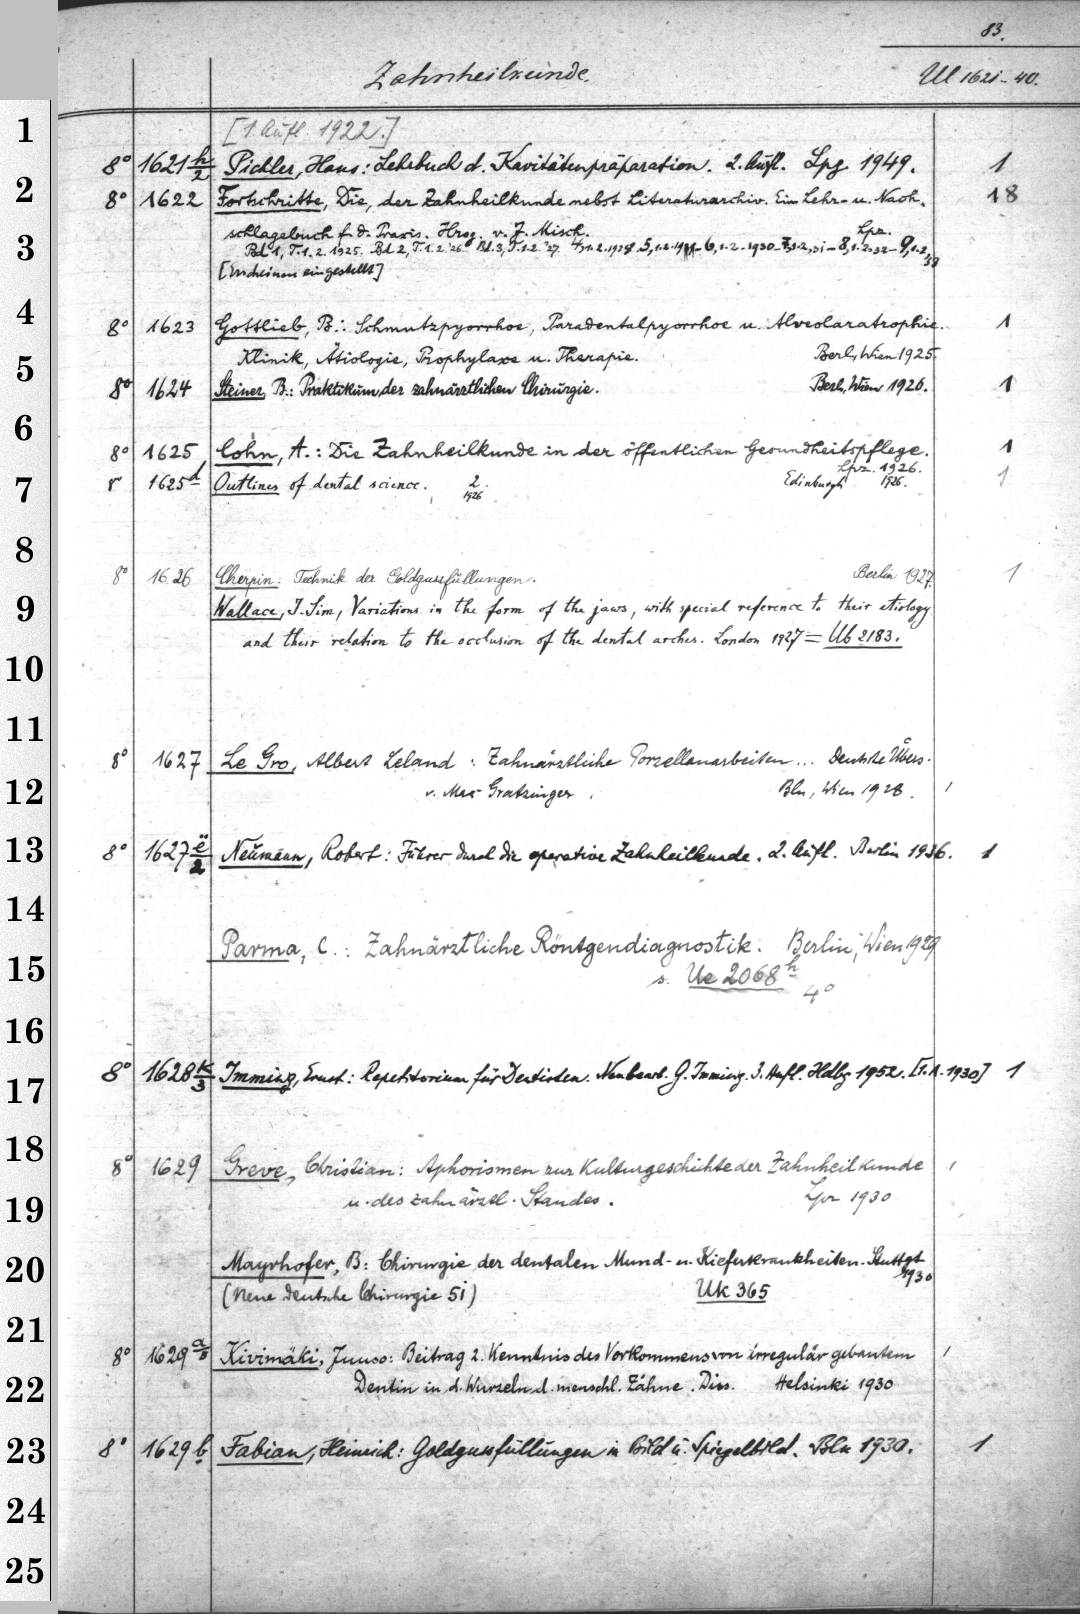 83.
Zahnheilkunde. Ul 1621-40.
1
[1. Aufl. 1922.]
8° 1621 h/2 Pichler, Hans: Lehrbuch d. Kavitätenpräparation. 2. Aufl. Lpg 1949. 1
2
8° 1622 Fortschritte, Die, der Zahnheilkunde nebst Literaturarchiv. Ein Lehr- u. Nach- 18
schlagebuch f. d. Praxis. Hrsg. v. J. Misch. Lpz.
3
Bd 1, T. 1. 2. 1925. Bd 2, T. 1. 2. '26. Bd. 3, T. 1. 2. '27
[Erscheinen eingestellt]
4
8° 1623 Gottlieb, B.: Schmutzpyorrhoe, Paradentalpyorrhoe u. Alveolaratrophie. 1
Klinik, Ätiologie, Prophylaxe u. Therapie. Berl., Wien 1925.
5
8° 1624 Steiner, B.: Praktikum der zahnärztlichen Chirurgie. Berl., Wien 1926. 1
6
8° 1625 Cohn, A.: Die Zahnheilkunde in der öffentlichen Gesundheitspflege. 1
Lpz. 1926.
7
1625d Outlines of dental science. 2. 1926 Edinburgh 1926. 1
8
8° 1626 Cherpin: Technik der Goldgussfüllungen. Berlin 1927 1
9
Wallace, J. Sim, Variations in the form of the jaws, with special reference to their etiology
and their relation to the occlusion of the dental arches. London 1927 = Ub 2183.
10
11
8° 1627 Le Gro, Albert Leland: Zahnärztliche Porzellanarbeiten... Deutsche Übers.
12
v. Max Gratzinger. Bln, Wien 1928. 1
13
8° 1627 e/2 Neumann, Robert: Führer durch die operative Zahnheilkunde. 2. Aufl. Berlin 1936. 1
14
Parma, C.: Zahnärztliche Röntgendiagnostik. Berlin, Wien 1929
15
s. Ue 2068h 4°
16
8° 1628 k/3 Imming, Ernst: Repetitorium für Dentisten. Neubearb. G. Imming. 3. Aufl. Hdlbg 1952. [1. A. 1930] 1
17
18
8° 1629 Greve, Christian: Aphorismen zur Kulturgeschichte der Zahnheilkunde 1
19
u. des zahnärztl. Standes. Lpz 1930
20
Mayrhofer, B: Chirurgie der dentalen Mund- u. Kieferkrankheiten. Stuttgt
1930
(Neue Deutsche Chirurgie 51) Uk 365
21
8° 1629 Kivimäki, Juuso: Beitrag z. Kenntnis des Vorkommens von irregulär gebautem 1
22
Dentin in d. Wurzeln d. menschl. Zähne. Diss. Helsinki 1930
23
8° 1629b Fabian, Heinrich: Goldgussfüllungen in Bild u. Spiegelbild. Bln 1930. 1
24
25